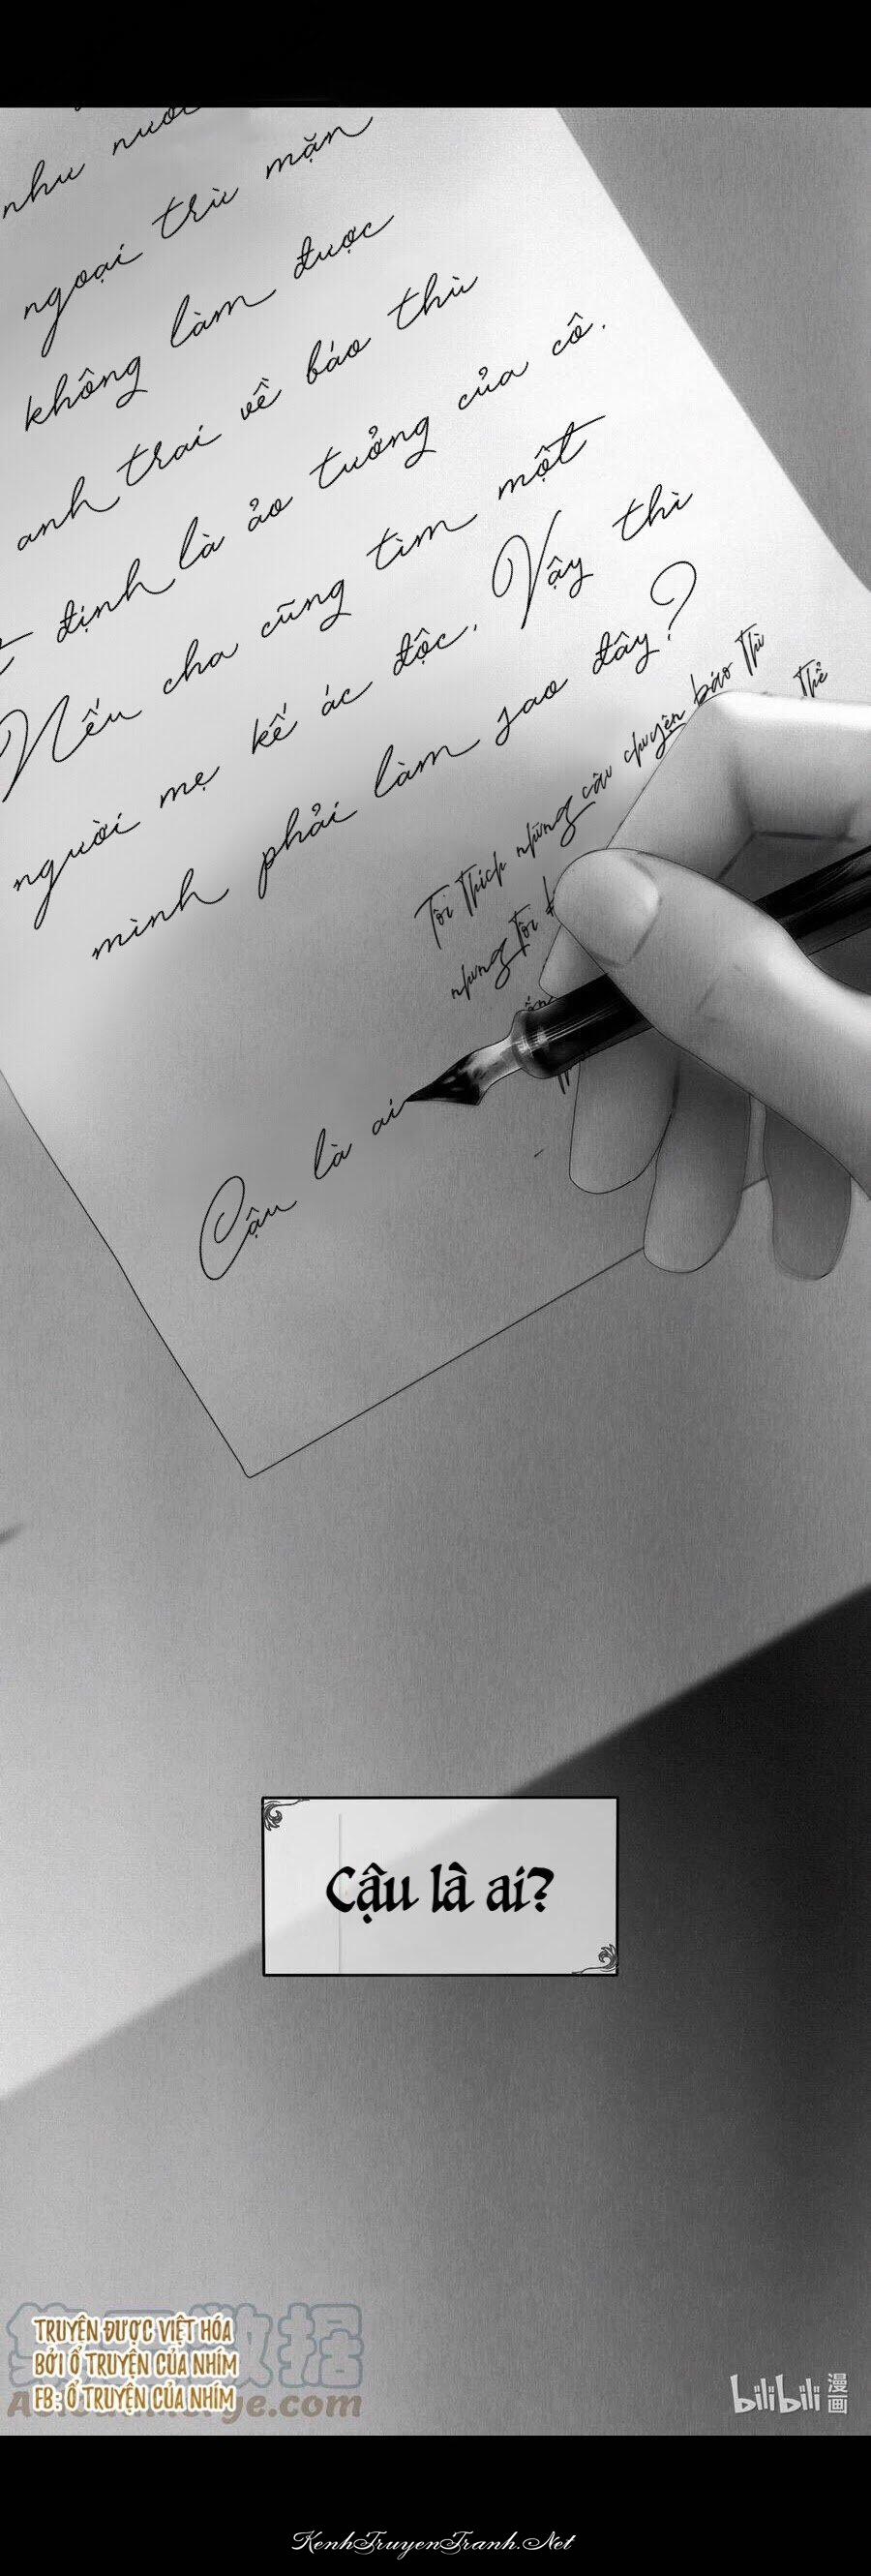 như nước
ngoại trừ mặn
không làm được
anh trai về báo thù
định là ảo tưởng của cô.
Nếu cha cũng tìm một
người mẹ kế ác độc. Vậy thì
mình phải làm sao đây?
Tôi thích những câu chuyện báo thù
thể
nhưng tôi
Cậu là ai
Cậu là ai?
TRUYỆN ĐƯỢC VIỆT HÓA
BỞI Ổ TRUYỆN CỦA NHÍM
FB: Ổ TRUYỆN CỦA NHÍM
bilibili 漫画
KenhTruyenTranh.Net